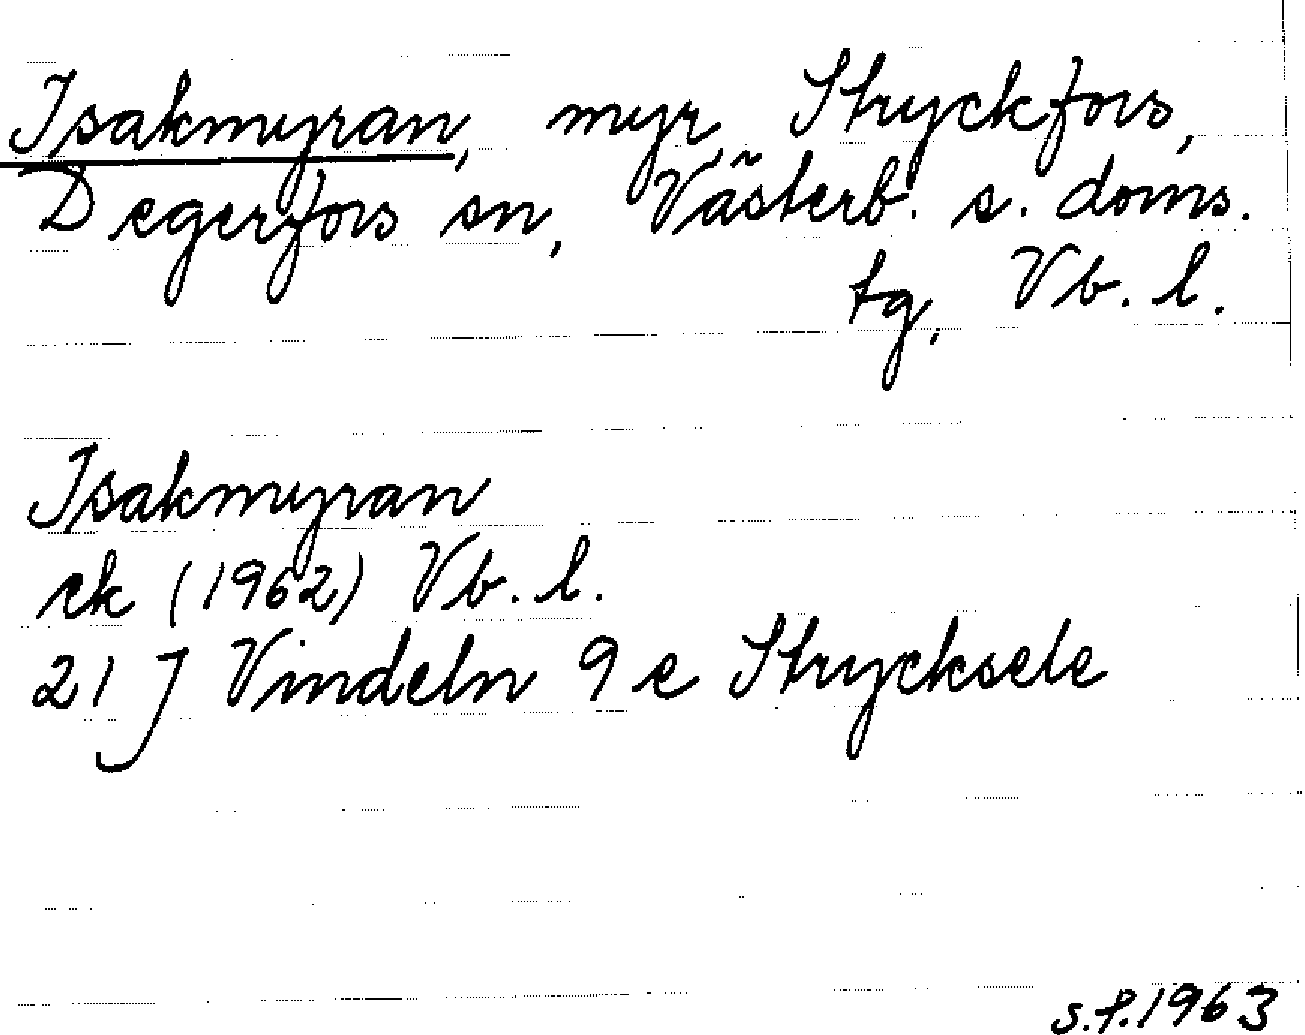 Isakmyran, myr, Stryckfors,
Degerfors sn, Västerb. s. doms.
tg, Vb. l.
Isakmyran
ek (1962) Vb. l.
21 J Vindeln 9 e Strycksele
s.f. 1963